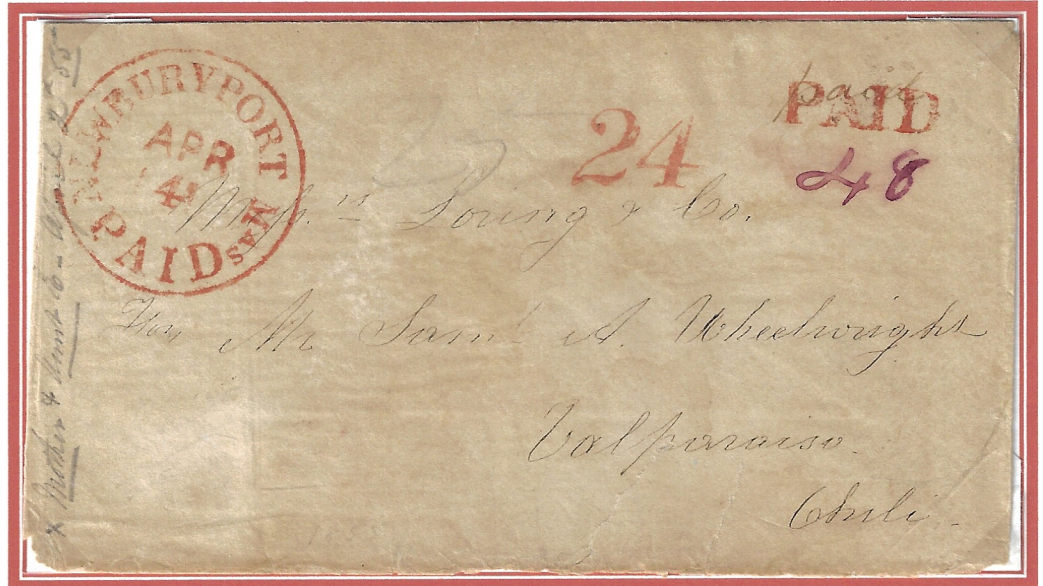 NEWBURYPORT MAS
APR
4
PAID
24
paid
PAID
48
Mess.rs Loring & Co.
For Mr Saml A. Wheelwright
Valparaiso.
Chili.
x Mother & Aunt - April 2d 55